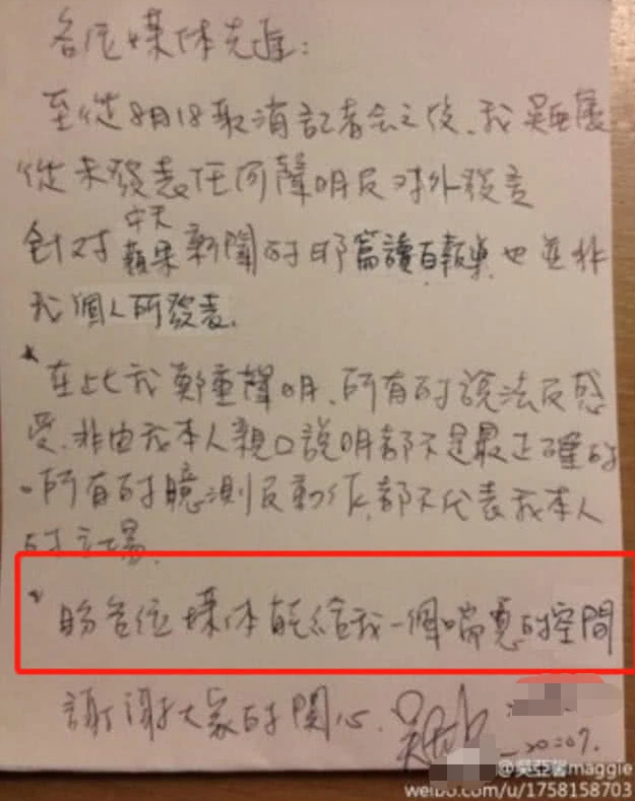 各位媒体先進:
至從8月18取消記者会之後、我吳亞馨
從未發表任何聲明及对外發言
針对中天蘋果新聞的那篇讀白報導,也並非
我個人所發表.
*在此我鄭重聲明、所有的說法及感
受、非由我本人親口說明都不是最正確的
。所有的臆測及動作,都不代表我本人
的立場.
*盼各位媒体能給我一個喘息的空間
謝謝大家的関心.
20:07.
@吳亞馨maggie
weibo.com/u/1758158703